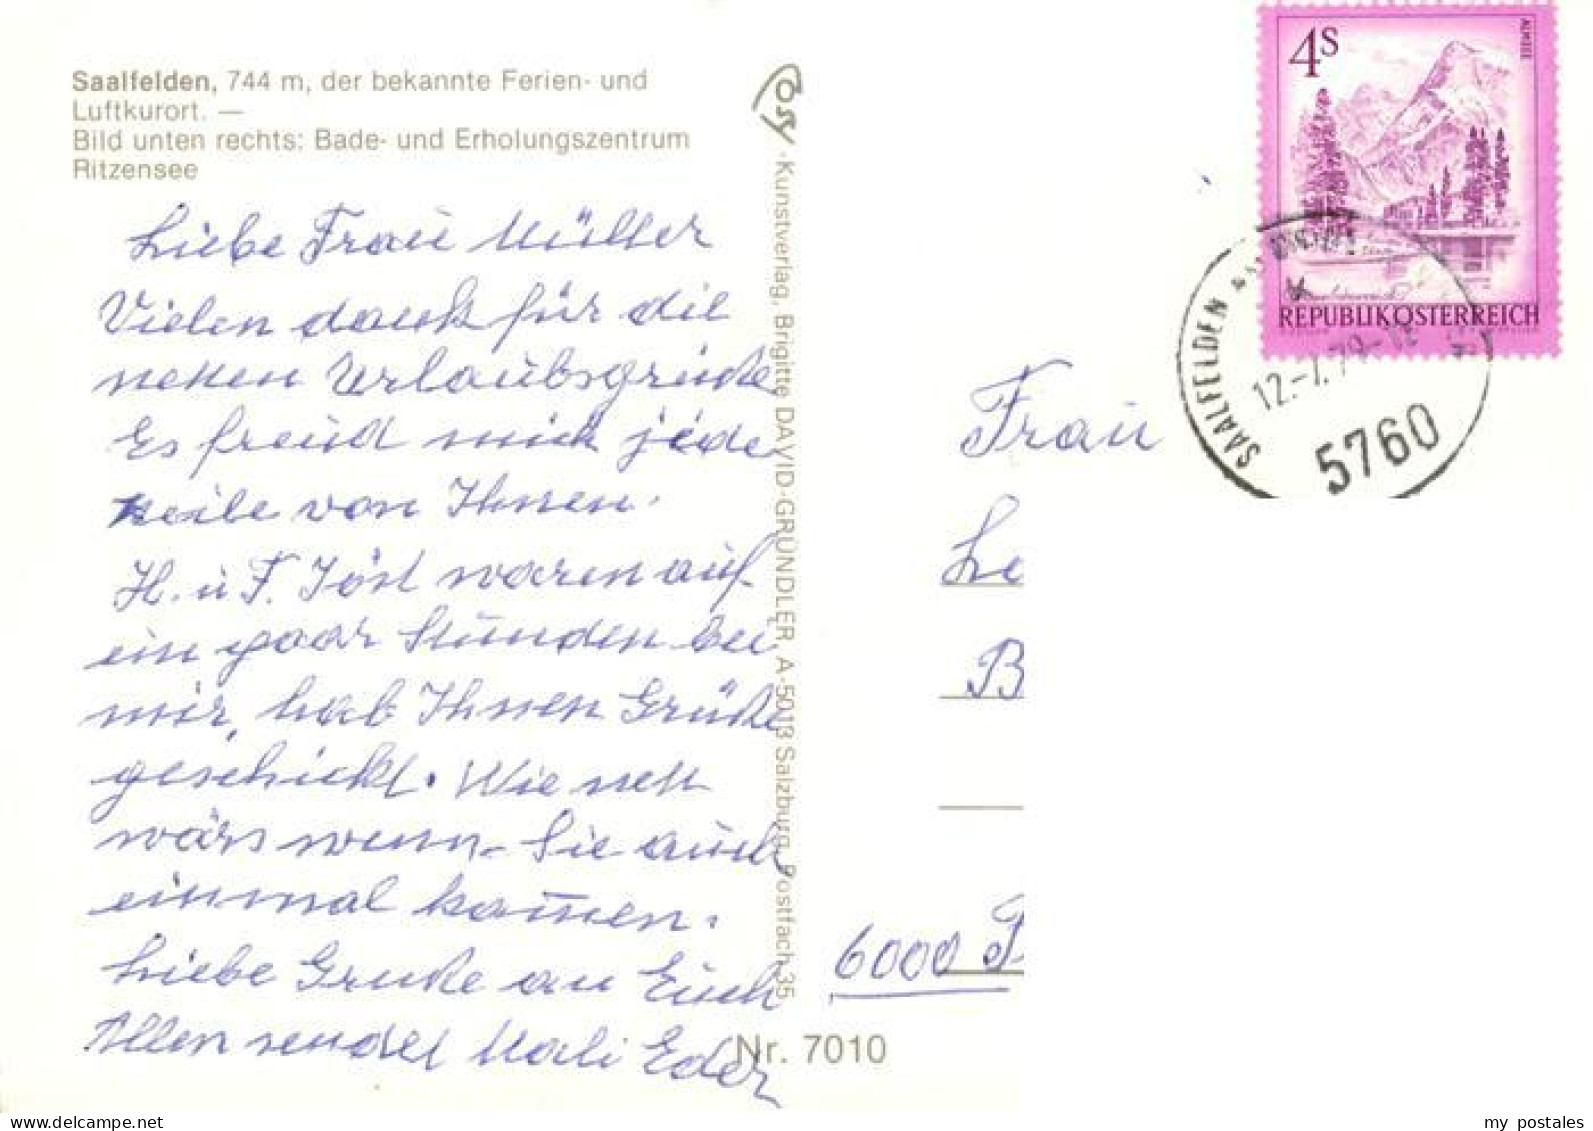 Saalfelden, 744 m, der bekannte Ferien- und
Luftkurort. —
Bild unten rechts: Bade- und Erholungszentrum
Ritzensee
Liebe Frau Müller
Vielen dank für die
netten Urlaubsgrüße
Es freud mich jede
zeile von Ihnen.
H. u F. Jöst waren auf
ein paar Stunden bei
mir, hab Ihnen Grüße
geschickt. Wie nett
wärs wenn Sie auch
einmal kom̄en.
Liebe Gruße an Euch
Allen sendet Mali Eder
Cosy
·Kunstverlag, Brigitte DAVID-GRÜNDLER A-5013 Salzburg, Postfach 35
Nr. 7010
4S
ALMSEE
REPUBLIK ÖSTERREICH
SAALFELDEN
12.-7.79-12
5760
Frau
Le
B
6000
my postales